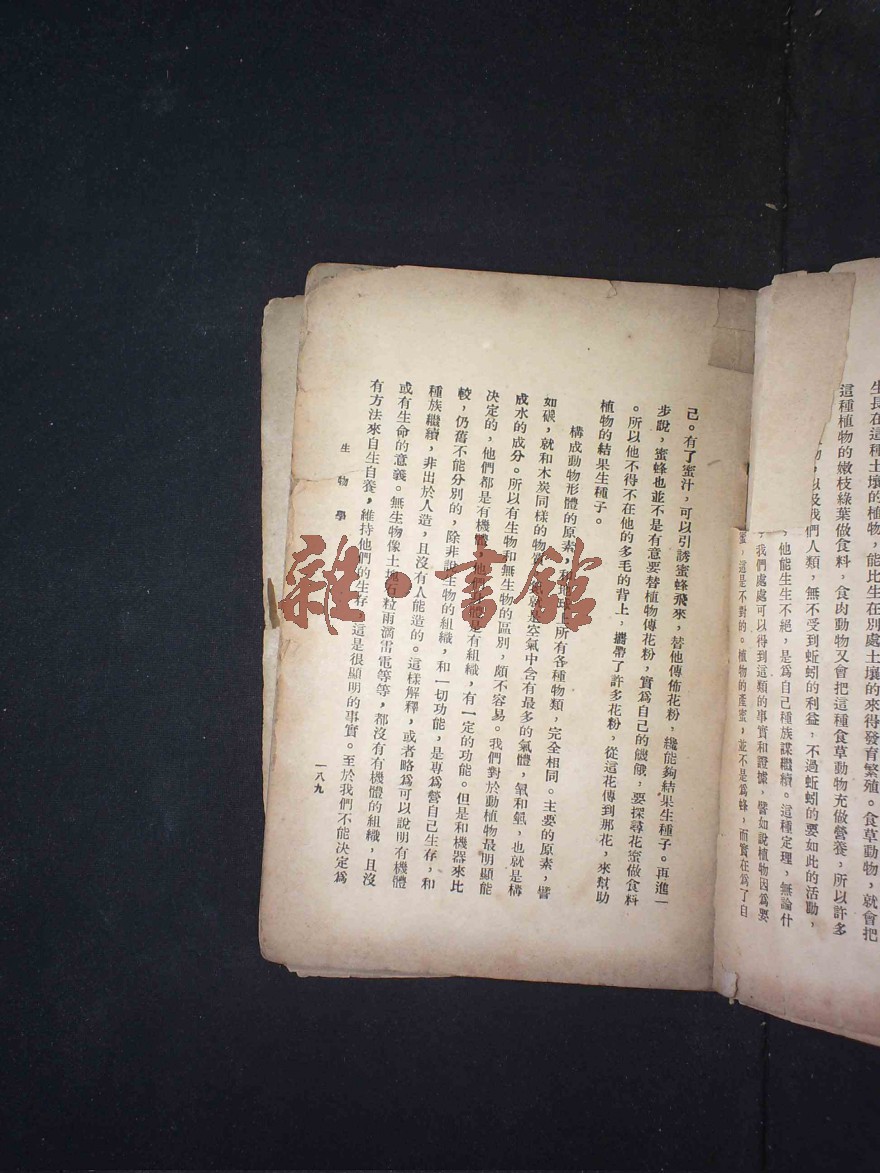 生長在這種土壤的植物，能比生在別處土壤的來得發育繁殖。食草動物，就會把
這種植物的嫩枝綠葉做食料，食肉動物又會把這種食草動物充做營養，所以許多
物，以及我們人類，無不受到蚯蚓的利益，不過蚯蚓的要如此的活動，
他能生生不絕，是爲自己種族謀繼續。這種定理，無論什
我們處處可以得到這類的事實和證據，譬如說植物因爲要
蜜，這是不對的。植物的產蜜，並不是爲蜂，而實在爲了自
己。有了蜜汁，可以引誘蜜蜂飛來，替他傳佈花粉，纔能夠結果生種子。再進一
步說，蜜蜂也並不是有意要替植物傳花粉，實爲自己的饑餓，要探尋花蜜做食料
。所以他不得不在他的多毛的背上，攜帶了許多花粉，從這花傳到那花，來幫助
植物的結果生種子。
構成動物形體的原素，和地球上所有各種物類，完全相同。主要的原素，譬
如碳，就和木炭同樣的物質，氮就是空氣中含有最多的氣體，氧和氫，也就是構
成水的成分。所以有生物和無生物的區別，頗不容易。我們對於動植物最明顯能
決定的，他們都是有機體，他們身體是有組織，有一定的功能。但是和機器來比
較，仍舊不能分別的，除非說生物的組織，和一切功能，是專爲營自己生存，和
種族繼續，非出於人造，且沒有人能造的。這樣解釋，或者略爲可以說明有機體
或有生命的意義。無生物像土塊石粒雨滴雷電等等，都沒有有機體的組織，且沒
有方法來自生自養，維持他們的生存，這是很顯明的事實。至於我們不能決定爲
生物學
一八九
雜·書館